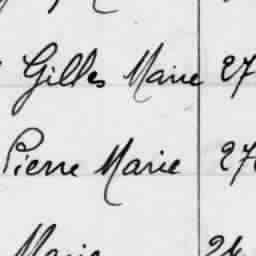 Gilles Marie 27
Pierre Marie 27
Marie 24